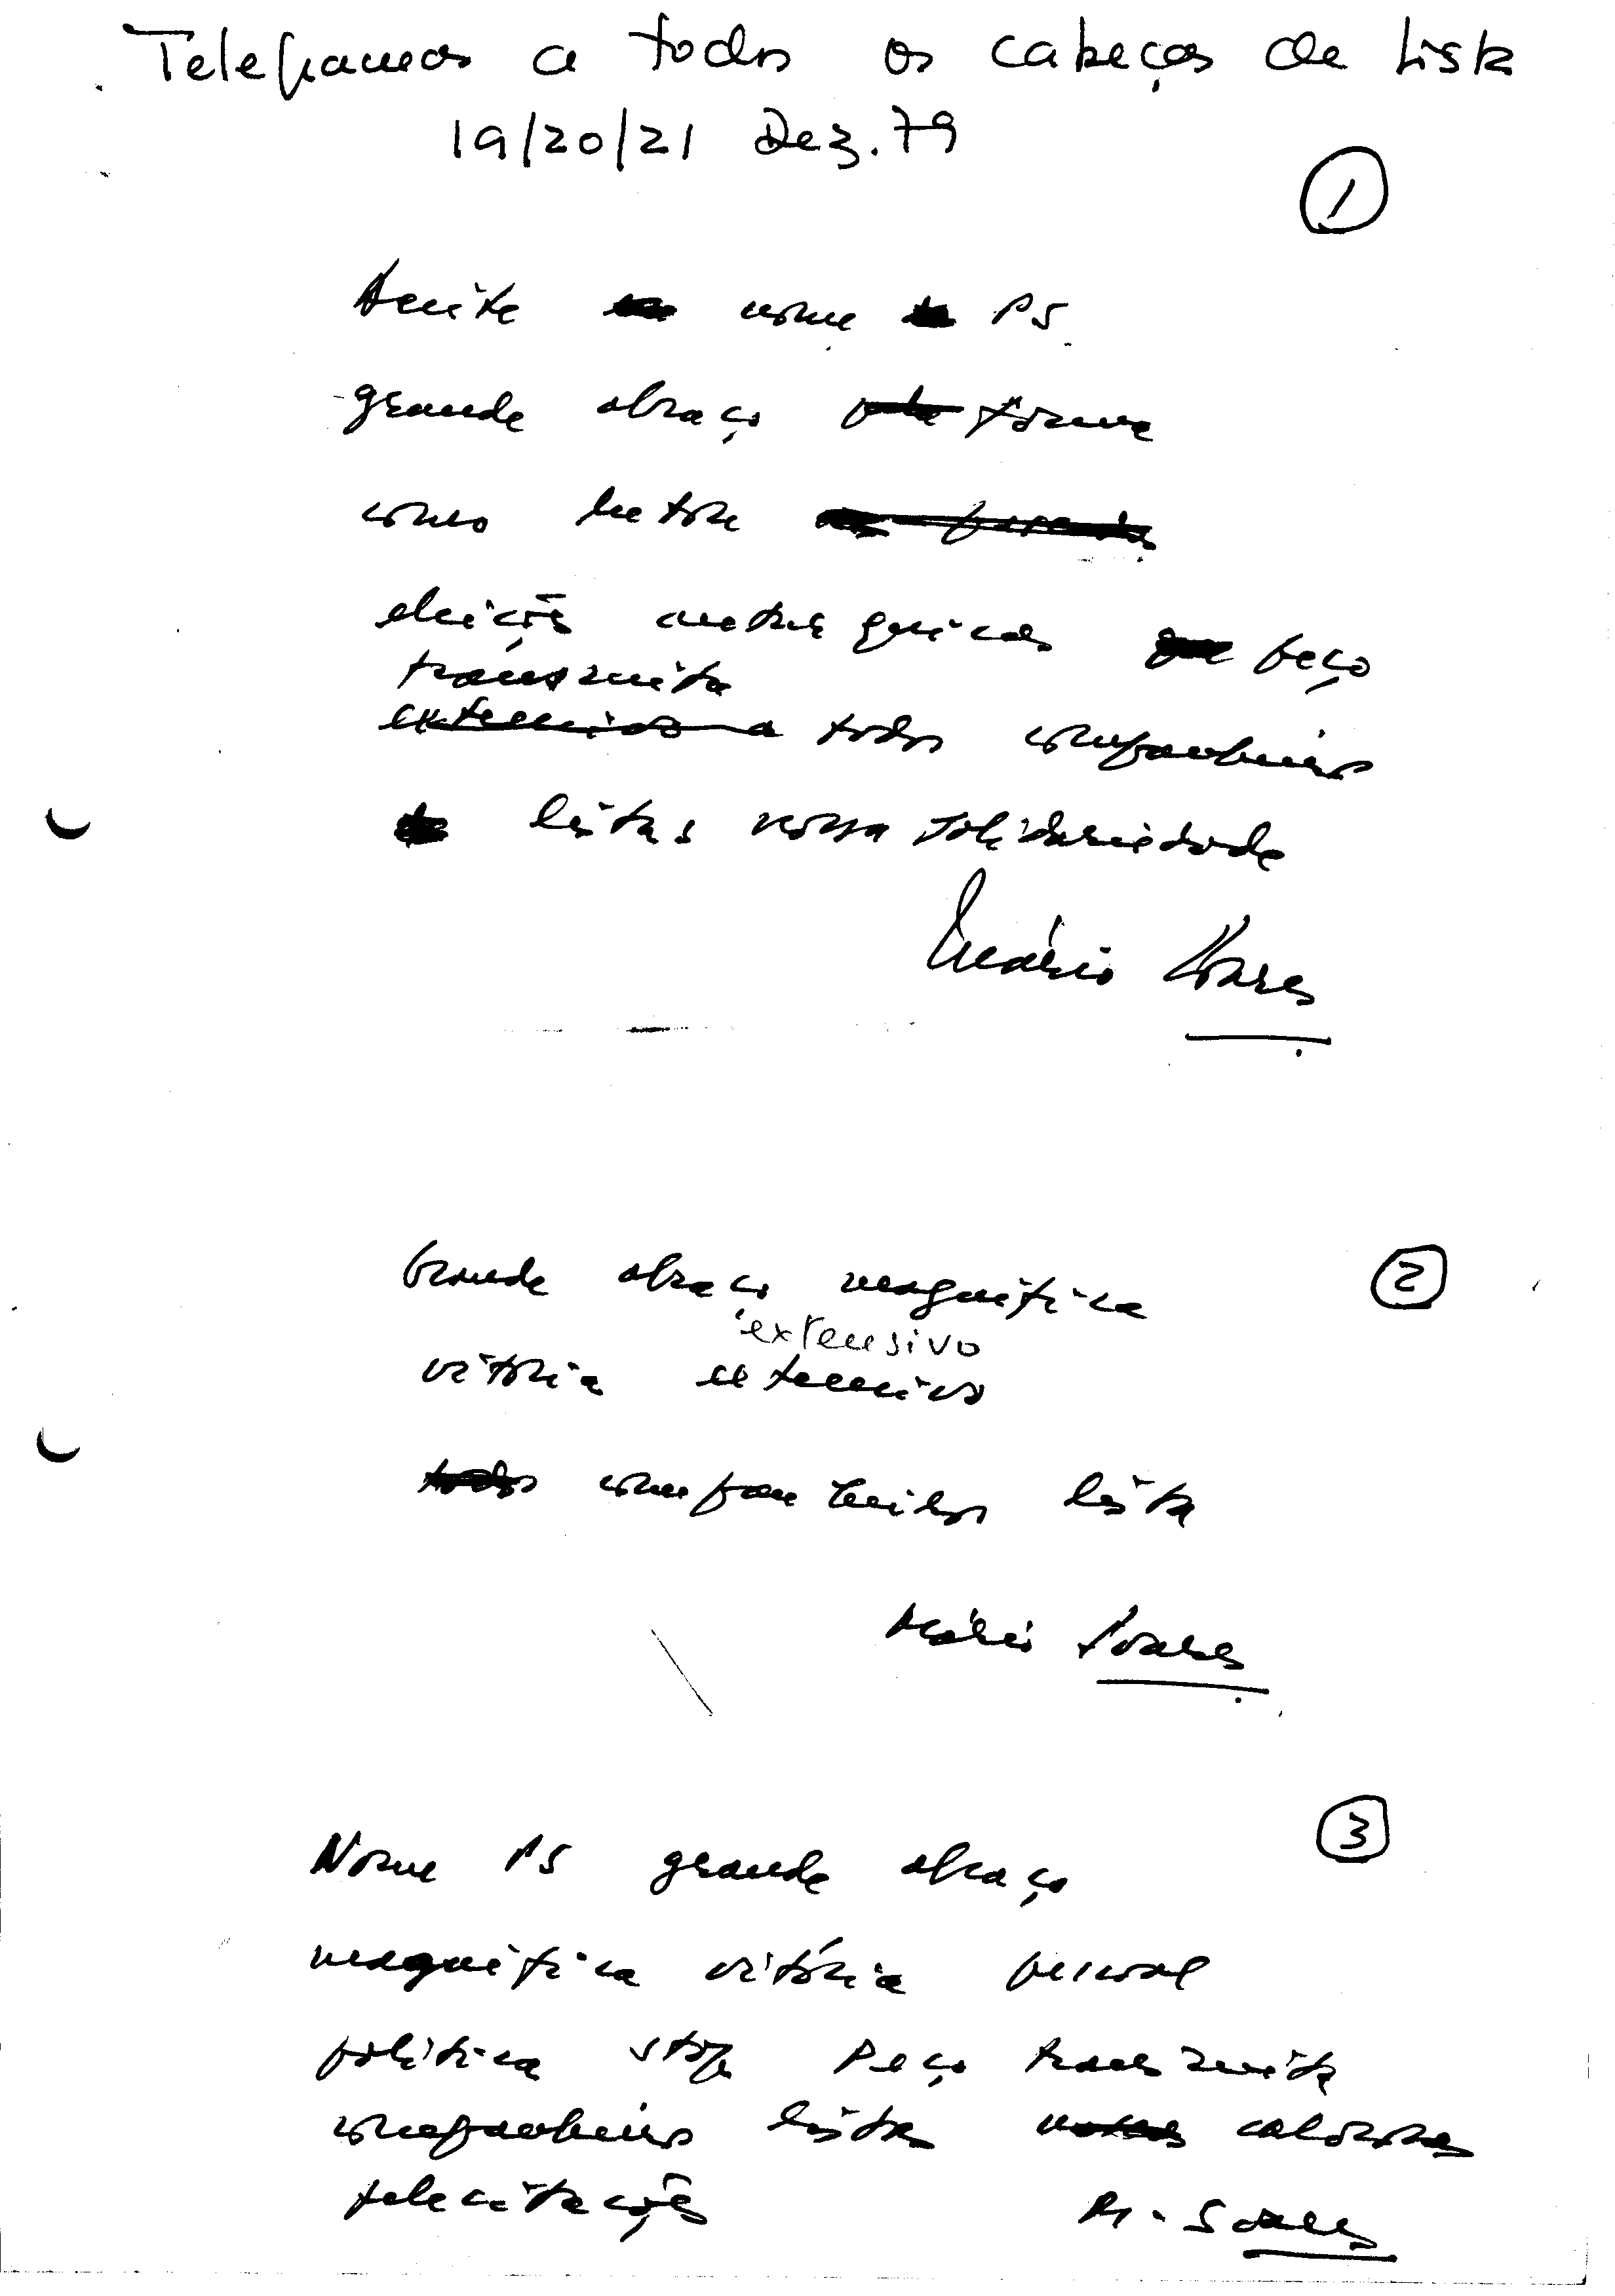 Telegramas a todos os cabeças de lista
19/20/21 Dez. 79
1
Aceite nome PS
grande abraço forma
como bateu
eleições autárquicas que peço
transmita
extensivo a todos companheiros
de listas nossa solidariedade
Mário Soares
2
Grande abraço magnífica
extensivo
vitória extensivo
todos companheiros lista
Mário Soares
3
Nome PS grande abraço
magnífica vitória pessoal
política stop Peço transmita
companheiros lista calorosas
felicitações
M. Soares